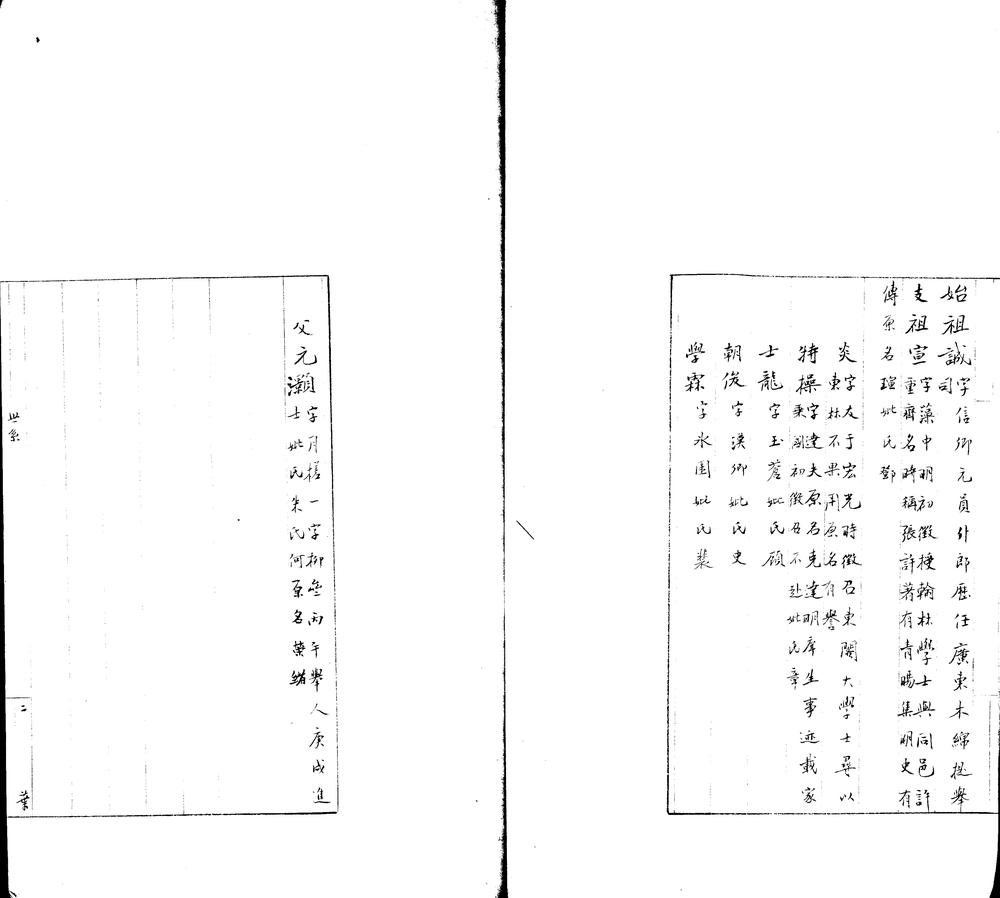 始祖誠字信卿元員外郎歷任廣東木綿提舉
司
支祖宣字藻中明初徵授翰林學士與同邑許
重齊名時稱張許著有青暘集明史有
傳原名瑄妣氏鄧
炎字友于宏光時徵召東閣大學士尋以
東林不果用原名有譽
特操字達夫原名克達明庠生事迹載家
乘國初徵召不赴妣氏章
士龍字玉蒼妣氏顧
朝俊字漢卿妣氏史
學霖字永圃妣氏裴
父元灝字月槎一字柳丙午舉人庚戌進
士妣氏朱氏何原名緒
世系
二
葉